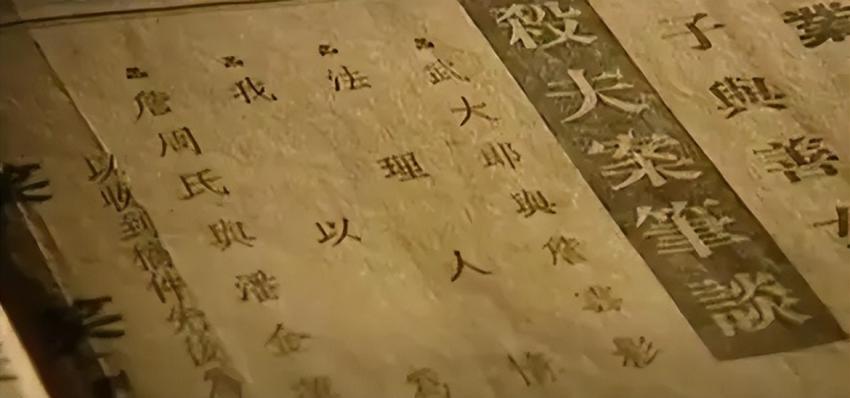 子與善
殺夫案筆談
武大郎與詹雲影
法理人情
我以為
詹周氏與潘金蓮
以收到信件先後